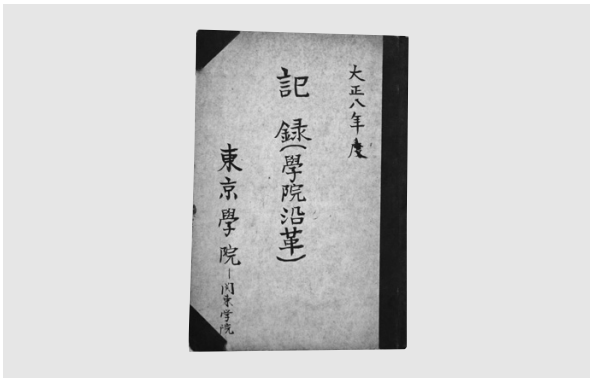 大正八年度
記録(學院沿革)
東京學院-関東学院